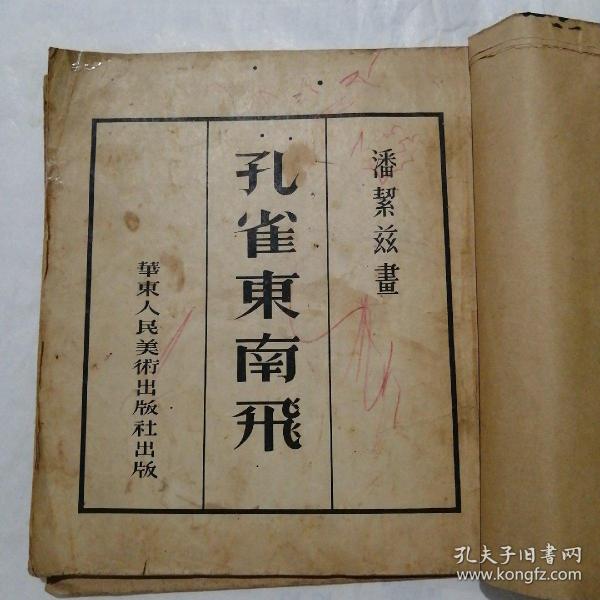 潘絜茲畫
孔雀東南飛
華東人民美術出版社出版
孔夫子旧書网
www.kongfz.com